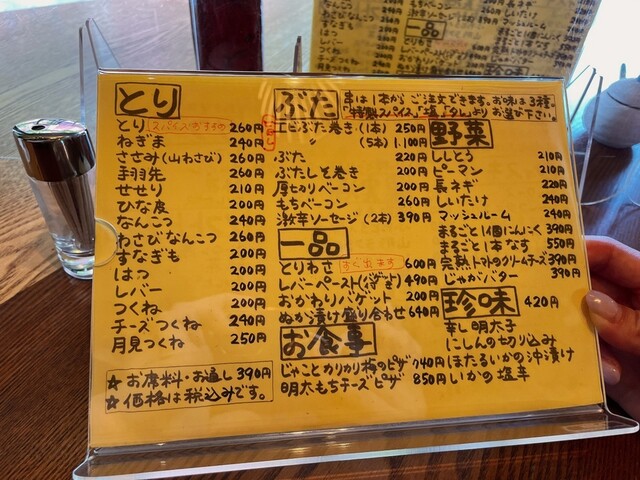 とり
とり スパイスおすすめ 260円
ねぎま 240円
ささみ(山わさび) 260円
手羽先 260円
せせり 210円
ひな皮 200円
なんこつ 240円
わさびなんこつ 260円
すなぎも 200円
はつ 200円
レバー 200円
つくね 200円
チーズつくね 240円
月見つくね 250円
☆お席料・お通し390円
☆価格は税込みです。
ぶた
串は1本からご注文できます。お味は3種。
"特製スパイス" "塩" "タレ" よりお選び下さい。
エビぶた巻き(1本) 250円
〃 (5本) 1.100円
ぶた 220円
ぶたしそ巻き 200円
厚切りベーコン 200円
もちベーコン 260円
激辛ソーセージ(2本) 390円
一品
とりわさ すぐ出ます 600円
レバーペースト 490円
おかわりバゲット 200円
ぬか漬け盛り合わせ 640円
お食事
じゃことカリカリ梅のピザ 740円
明太もちチーズピザ 850円
野菜
ししとう 210円
ピーマン 210円
長ネギ 220円
しいたけ 240円
マッシュルーム 240円
まるごと1個にんにく 390円
まるごと1本なす 550円
完熟トマトのクリームチーズ 390円
じゃがバター 390円
珍味 420円
辛し明太子
にしんの切り込み
ほたるいかの沖漬け
いかの塩辛